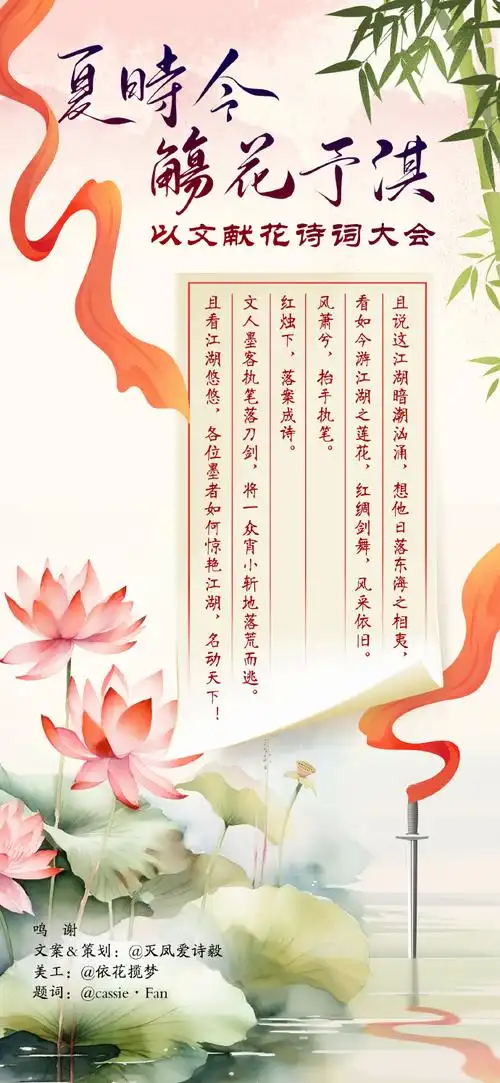 夏時令
觴花予淇
以文献花诗词大会
且说这江湖暗潮汹涌，想他日落东海之相夷，
看如今游江湖之莲花，红绸剑舞，风采依旧。
风萧兮，抬手执笔。
红烛下，落案成诗。
文人墨客执笔落刀剑，将一众宵小斩地落荒而逃。
且看江湖悠悠，各位墨者如何惊艳江湖，名动天下！
鸣 谢
文案&策划：@灭凤爱诗毅
美工：@依花揽梦
题词：@cassie·Fan